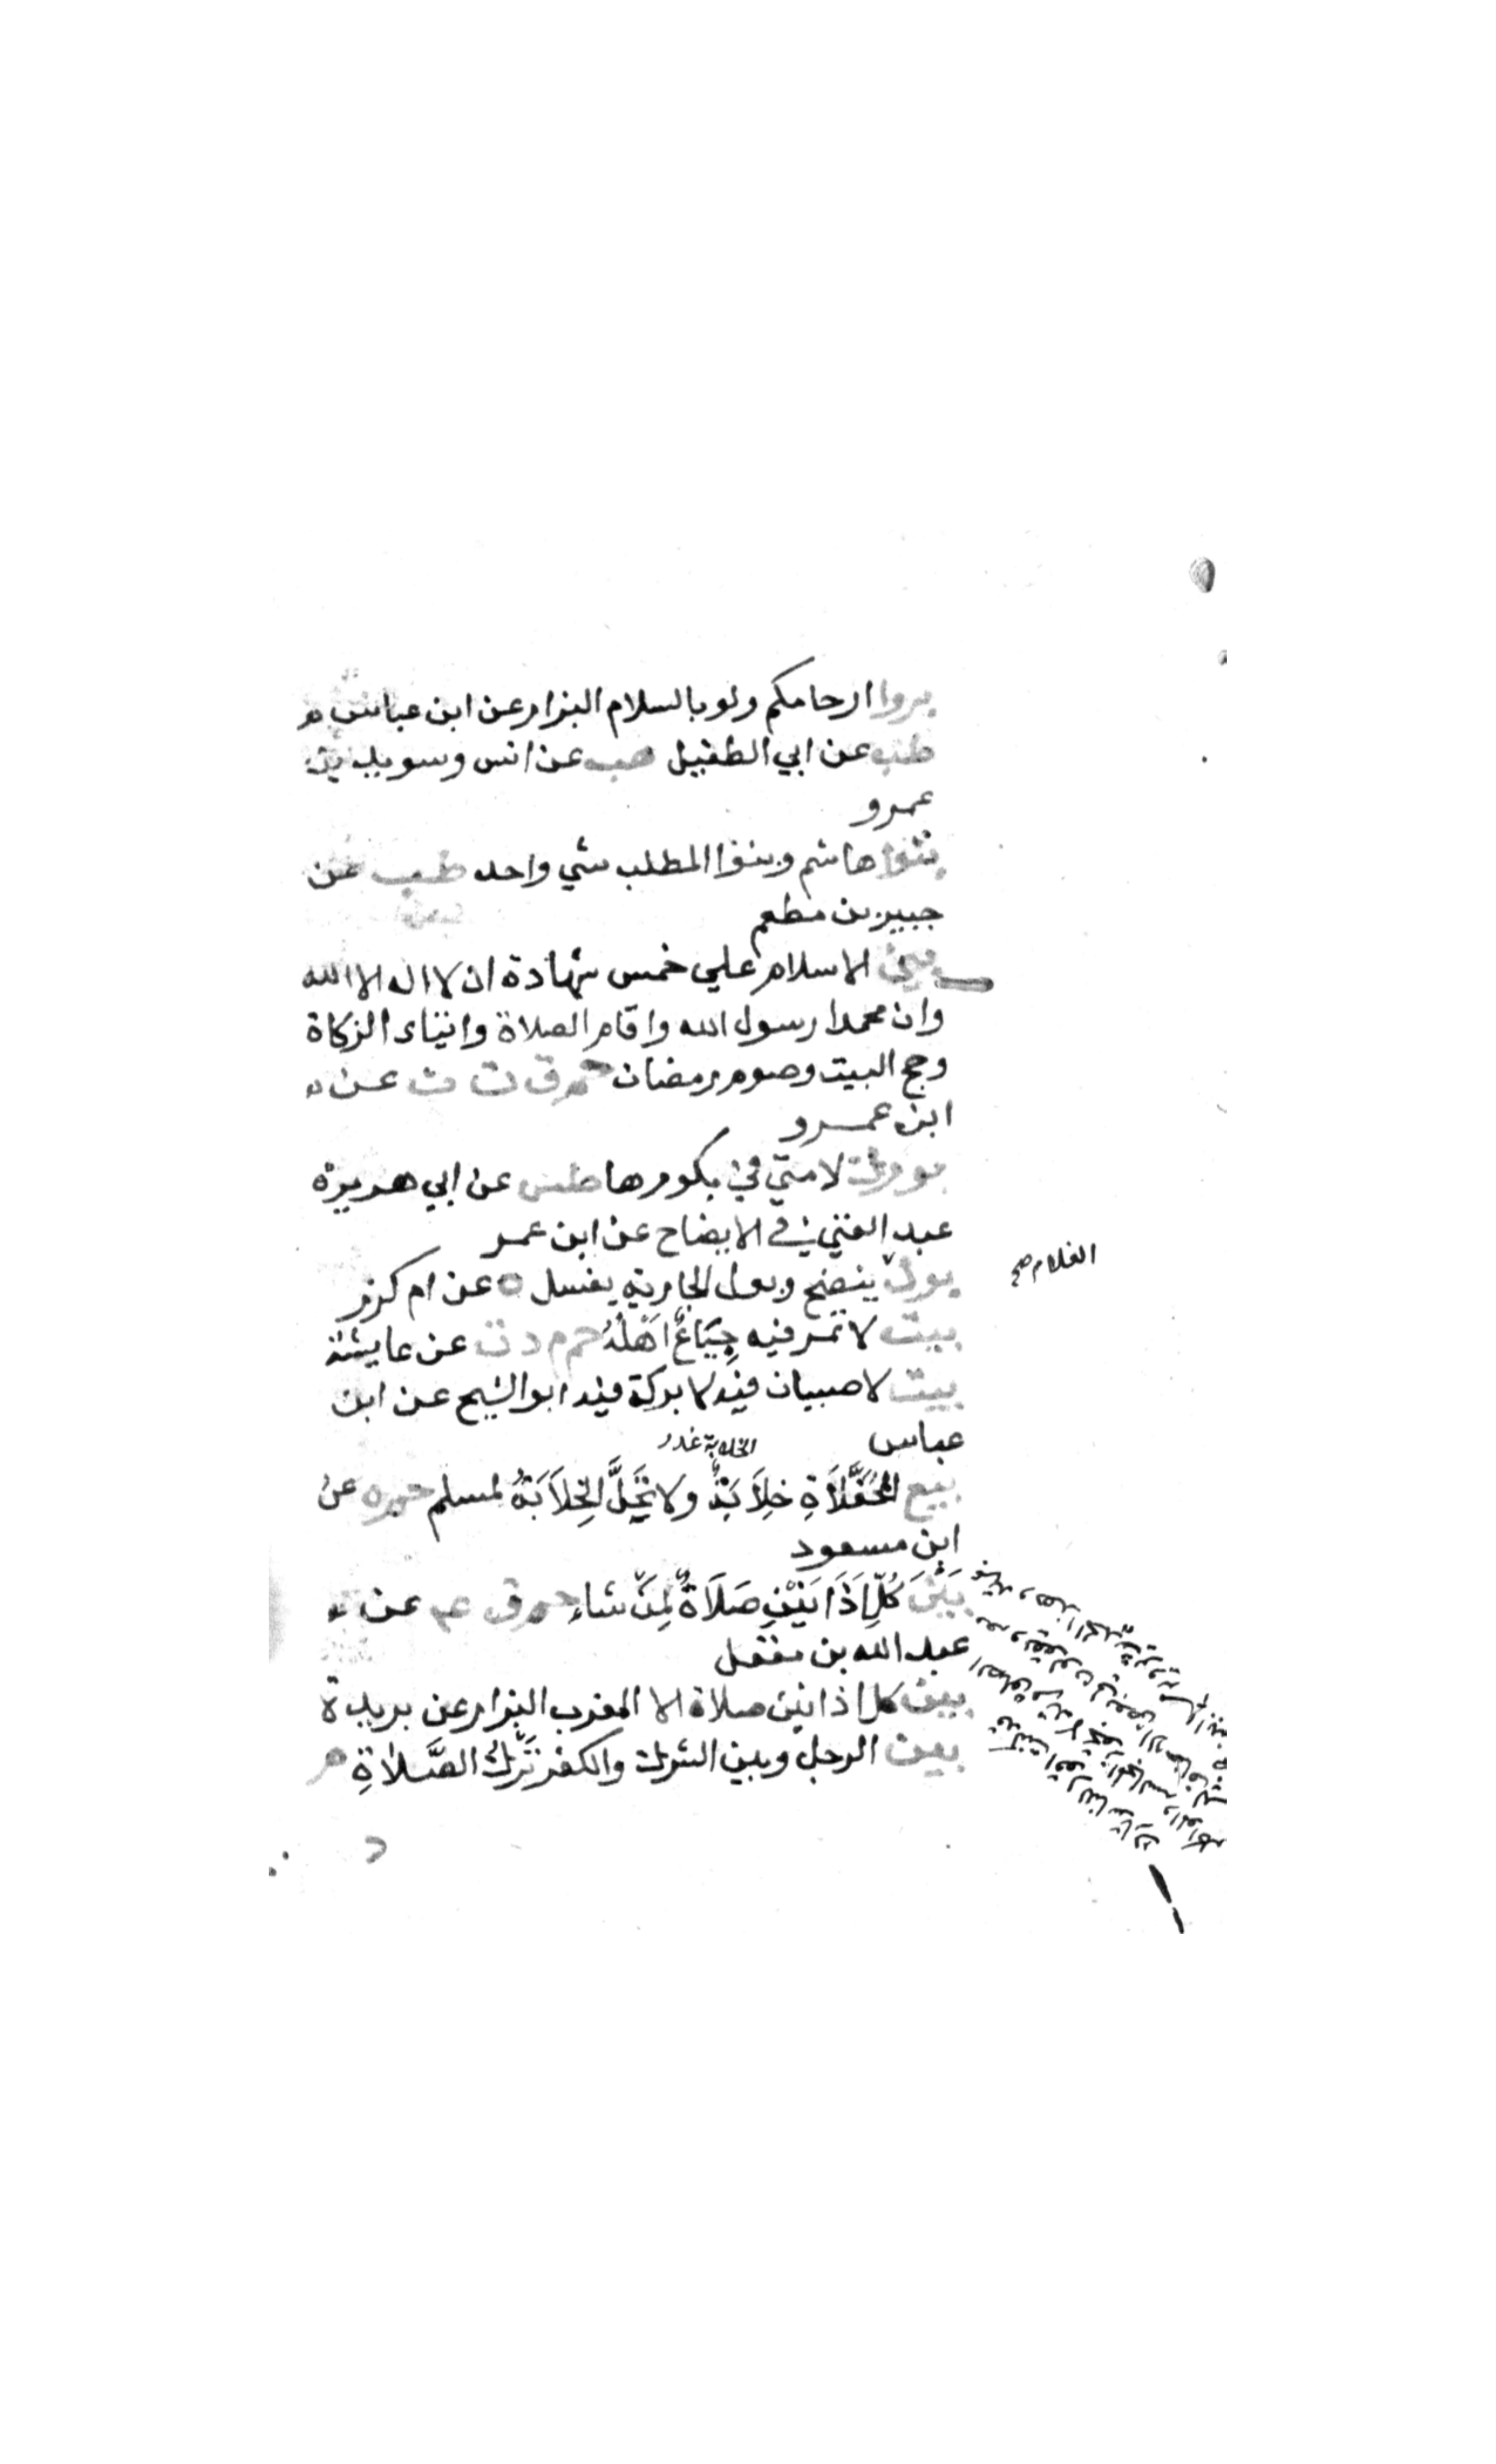 بروا ارحامكم ولو بالسلام البزار عن ابن عباس
طب عن ابي الطفيل هب عن انس وسويد بن
عمرو
بنوا هاشم وبنوا المطلب شي واحد طب عن
جبير بن مطعم
بني الاسلام علي خمس شهادة ان لا اله الا الله
وان محمدا رسول الله واقام الصلاة وايتاء الزكاة
وحج البيت وصوم رمضان حم ق ت ن عن
ابن عمرو
بورك لامتي في بكورها طس عن ابي هريرة
عبد الغني في الايضاح عن ابن عمر
بول ينضح وبول الجارية يغسل ه عن ام كرز
الغلام صح
بيت لا تمر فيه جِيَاعٌ اَهْلُهُ حم م د ت عن عايشة
بيت لا صبيان فيه لا بركة فيه ابو الشيخ عن ابن
عباس
الخلابة غدر
بيع المُحَفَّلَاةِ خِلَابَةٌ ولا تَحِلُّ الخِلَابَةُ لمسلم حم ه عن
ابن مسعود
بَيْنَ كُلِّ اَذَانَيْنِ صَلَاةٌ لِمَنْ شاء حم ق عن
عبد الله بن مغفل
بين كل اذانين صلاة الا المغرب البزار عن بريدة
بين الرجل وبين الشرك والكفر تَرْكُ الصَّلَاةِ م
د